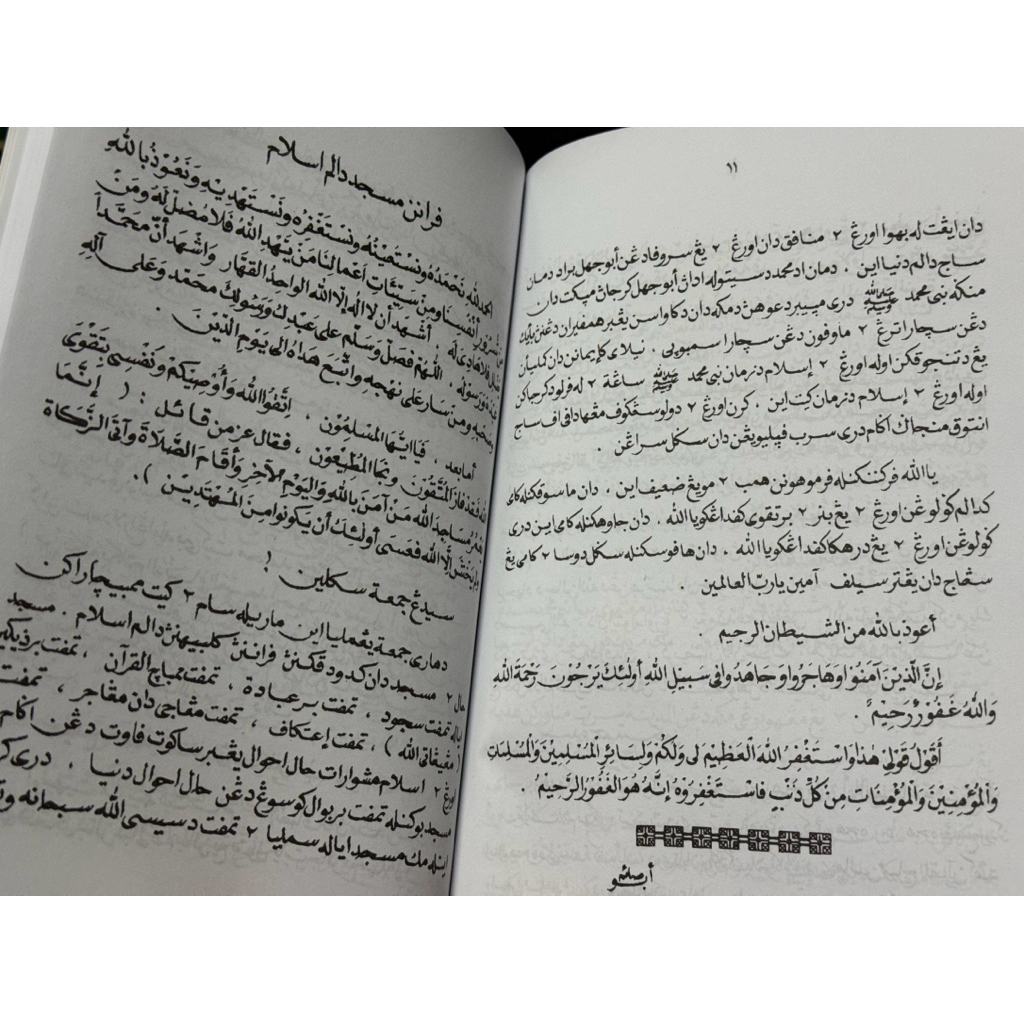 ١١
دان ايڠت له بهوا اورڠ ٢ منافق دان اورڠ ٢ يڠ سروفا دڠن أبو جهل براد دمان
ساج دالم دنيا اين . دمان اد محمد دسيتوله اداڽ أبو جهل كرجاڽ
نبي محمد ﷺ دري دعوهن دمكه دان
دڠن سچارا ترڠ ٢ ماوفون دڠن سچارا سمبوڽي . نيلاي كإيمانن دان
يڠ دتنجوقكن اوله اورڠ ٢ إسلام دزمان نبي محمد ﷺ ساڠة ٢ له فرلو دكرجاكن
اوله اورڠ ٢ إسلام دزمان كيت اين ، كرن اورڠ ٢ مڠهادافي اف ساج
انتوق منجاڬ اڬام دري سرب دان سڬل سراڠن .
يا الله فركننكنله فرموهونن همب ٢ مو يڠ ضعيف اين ، دان ماسوقكنله كامي
كدالم ڬولوڠن اورڠ ٢ يڠ بنر ٢ برتقوى كفد اڠكو يا الله ، دان جاوهكنله كامي اين دري
ڬولوڠن اورڠ ٢ يڠ درهكا كفد اڠكو يا الله ، دان هافوسكنله سڬل دوسا ٢ كامي يڠ
سڠاج دان يڠ ترسيلف . آمين يا ربّ العالمين .
أعوذ بالله من الشيطان الرجيم .
إِنَّ الَّذِيْنَ آمَنُوْا وَهَاجَرُوا وَجَاهَدُوا فِي سَبِيْلِ اللهِ أُولَئِكَ يَرْجُوْنَ رَحْمَةَ اللهِ
وَاللهُ غَفُوْرٌ رَحِيْمٌ .
أَقُوْلُ قَوْلِي هٰذَا وَاسْتَغْفِرُ اللهَ الْعَظِيْمَ لِي وَلَكُمْ وَلِسَائِرِ الْمُسْلِمِيْنَ وَالْمُسْلِمَاتِ
وَالْمُؤْمِنِيْنَ وَالْمُؤْمِنَاتِ مِنْ كُلِّ ذَنْبٍ فَاسْتَغْفِرُوْهُ إِنَّهُ هُوَ الْغَفُوْرُ الرَّحِيْمُ .
فرانن مسجد دالم اسلام
الحمد لله نَحْمَدُهُ وَنَسْتَعِيْنُهُ وَنَسْتَغْفِرُهُ وَنَسْتَهْدِيْهِ وَنَعُوْذُ بِاللهِ
شُرُوْرِ أَنْفُسِنَا وَمِنْ سَيِّئَاتِ أَعْمَالِنَا مَنْ يَهْدِ اللهُ فَلَا مُضِلَّ لَهُ وَمَنْ
فَلَا هَادِيَ لَهُ . أَشْهَدُ أَنْ لَا اِلٰهَ إِلَّا اللهُ الْوَاحِدُ الْقَهَّارُ وَاَشْهَدُ أَنَّ مُحَمَّدًا
وَرَسُوْلُهُ . اَللّٰهُمَّ فَصَلِّ وَسَلِّمْ عَلَى عَبْدِكَ وَرَسُوْلِكَ مُحَمَّدٍ وَعَلَى آلِهِ
وَمَنْ سَارَ عَلَى نَهْجِهِ وَاتَّبَعَ هُدَاهُ اِلَى يَوْمِ الدِّيْنِ .
أما بعد ، فَيَا أَيُّهَا الْمُسْلِمُوْنَ ، اِتَّقُوا اللهَ وَأُوْصِيْكُمْ وَنَفْسِى بِتَقْوَى
اللهِ فَقَدْ فَازَ الْمُتَّقُوْنَ وَنَجَا الْمُطِيْعُوْنَ ، فقال عز من قائل : ( إِنَّمَا
يَعْمُرُ مَسَاجِدَ اللهِ مَنْ آمَنَ بِاللهِ وَالْيَوْمِ الْآخِرِ وَأَقَامَ الصَّلَاةَ وَآتَى الزَّكَاةَ
وَلَمْ يَخْشَ إِلَّا اللهَ فَعَسَى أُولَئِكَ أَنْ يَكُوْنُوا مِنَ الْمُهْتَدِيْنَ ) .
سيدڠ جمعة سكلين !
دهاري جمعة يڠ مليا اين ماريله سام ٢ كيت ممبيچاراكن
حال ٢ مسجد دان كدودقكنڽ فراننڽ كلبيهنڽ دالم اسلام . مسجد
اياله تمفت سجود ، تمفت برعبادة ، تمفت ممباچ القرآن ، تمفت برذكير
تمفت إعتكاف ، تمفت مڠاجي دان مڠاجر ، تمفت
اورڠ ٢ اسلام مشوارات حال احوال يڠ برساڠكوت فاوت دڠن اڬام
مسجد بوكنله تمفت بربوال كوسوڠ دڠن حال احوال دنيا ، دري
اينله مك مسجد اياله سمليا ٢ تمفت دسيسى الله سبحانه